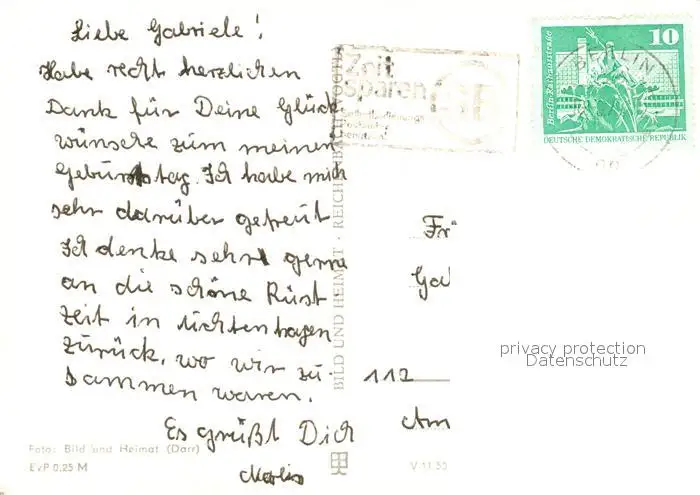 Liebe Gabriele!
Habe recht herzlichen
Dank für Deine Glück-
wünsche zum meinen
Geburtstag. Ich habe mich
sehr darüber gefreut
Ich denke sehr gerne
an die schöne Rüst
zeit in Lichtenhagen
zurück, wo wir zu-
sammen waren.
Es grüßt Dich
Foto: Bild und Heimat (Darr)
EVP 0,25 M
BILD UND HEIMAT · REICHENBACH VOGTL
Zeit
Sparen
10
Berlin-Rathausstraße
DEUTSCHE DEMOKRATISCHE REPUBLIK
BERLIN
Fr
Ga
112
Am
privacy protection
Datenschutz